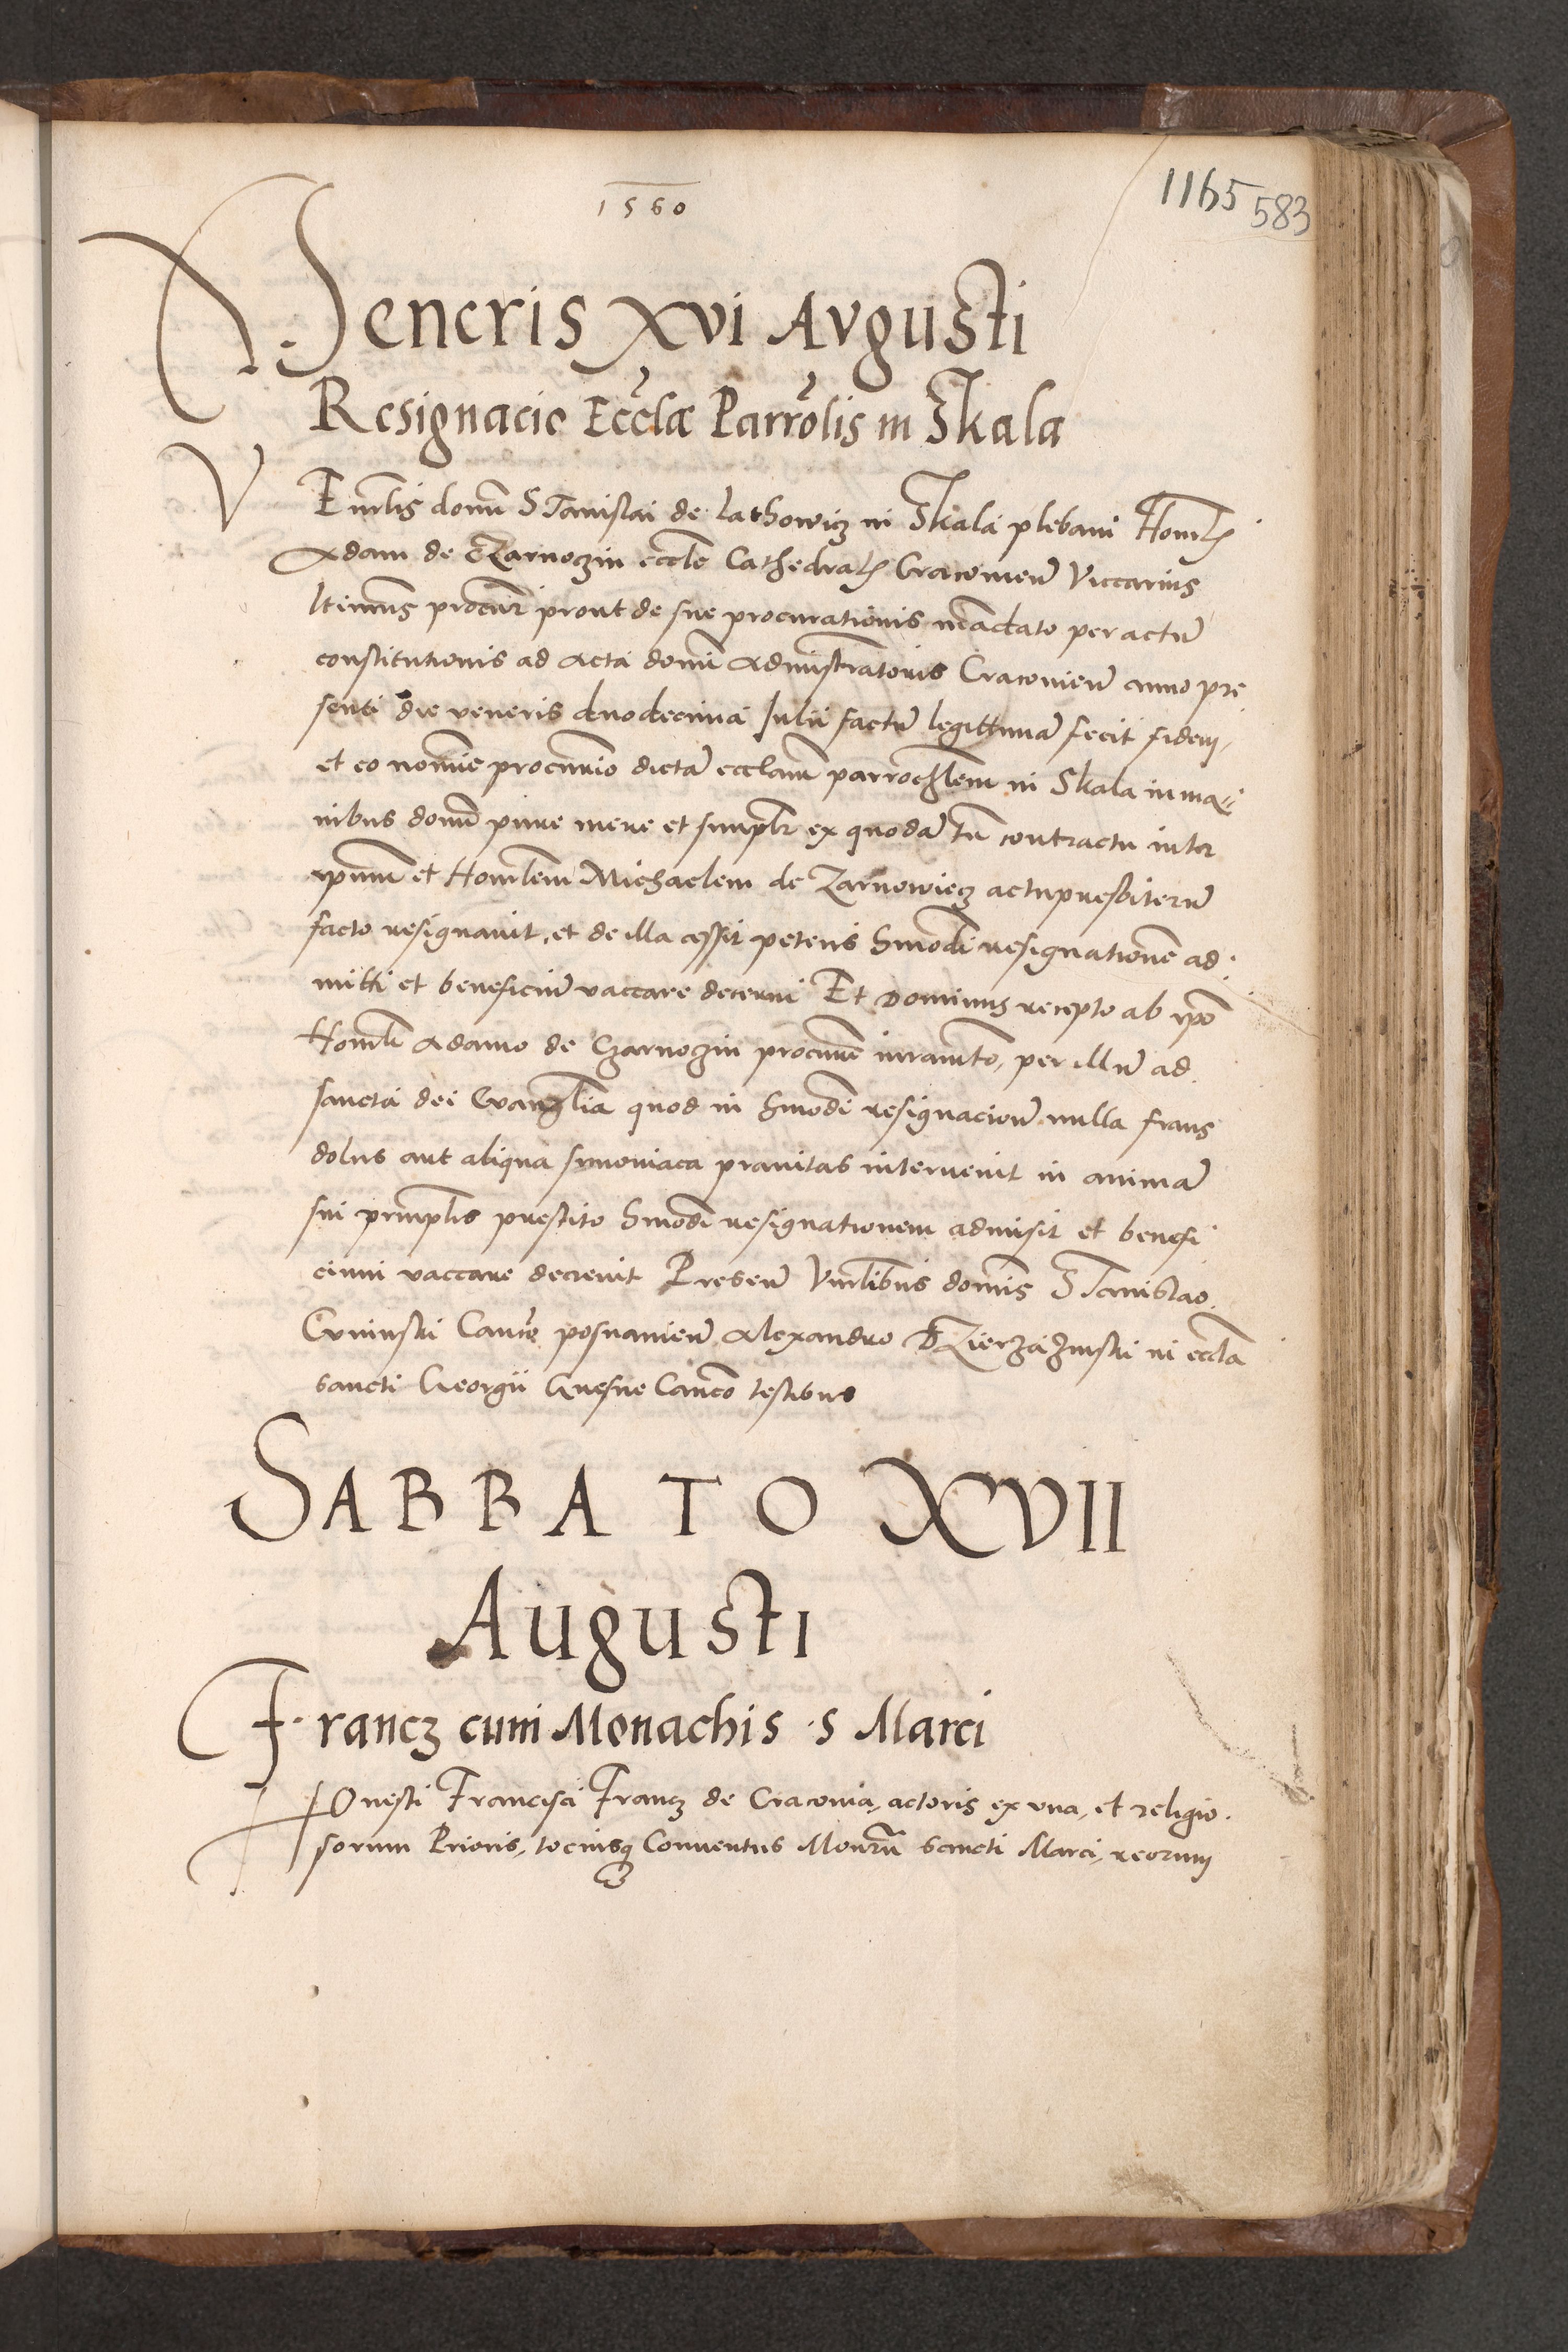 1560
1165 583
Veneris XVI Avgusti
Resignacio Eccla Parrolis in Skala
VEnrlis domi Stanislai de Lathowicz in Skala plebani Honrlis
Adam de Czarnoczin eccle Cathedralis Cracovien Viccarius
ltimus procur prout de sue procurationis mandato per actu
constitutionis ad acta domi Administratoris Cracovien anno pre
senti die veneris duodecima Julii factu legittima fecit fidem,
et eo nomie procurio dicta ecclam parrochlem in Skala in ma
nibus domi pure mere et simplr ex quoda tn contractu inter
ipsum et Honrlem Michaelem de Zarnowiecz actu presbiteru
facto resignavit, et de illa cessit petens hmodi resignatione ad
mitti et beneficiu vaccare decerni Et Dominus recepto ab ipo
Honrli Adamo de Czarnoczin procure iuramto, per illu ad
sancta dei Evanglia quod in hmodi resignacione nulla fraus
dolus aut aliqua symoniaca pravitas intervenit in anima
sui principlis prestito hmodi resignationem admisit et benefi
cium vaccare decrevit Presen Vnrlibus domis Stanislao
Canco posnanien Alexandro in eccla
sancti Georgii Gnesne Canco testibus
SABBATO XVII
Augusti
Francz cum Monachis S Marci
HOnesti Francisci Francz de Cracovia, actoris ex una, et religio
sorum Prioris, tociusq Conventus Monrii sancti Marci, reorum